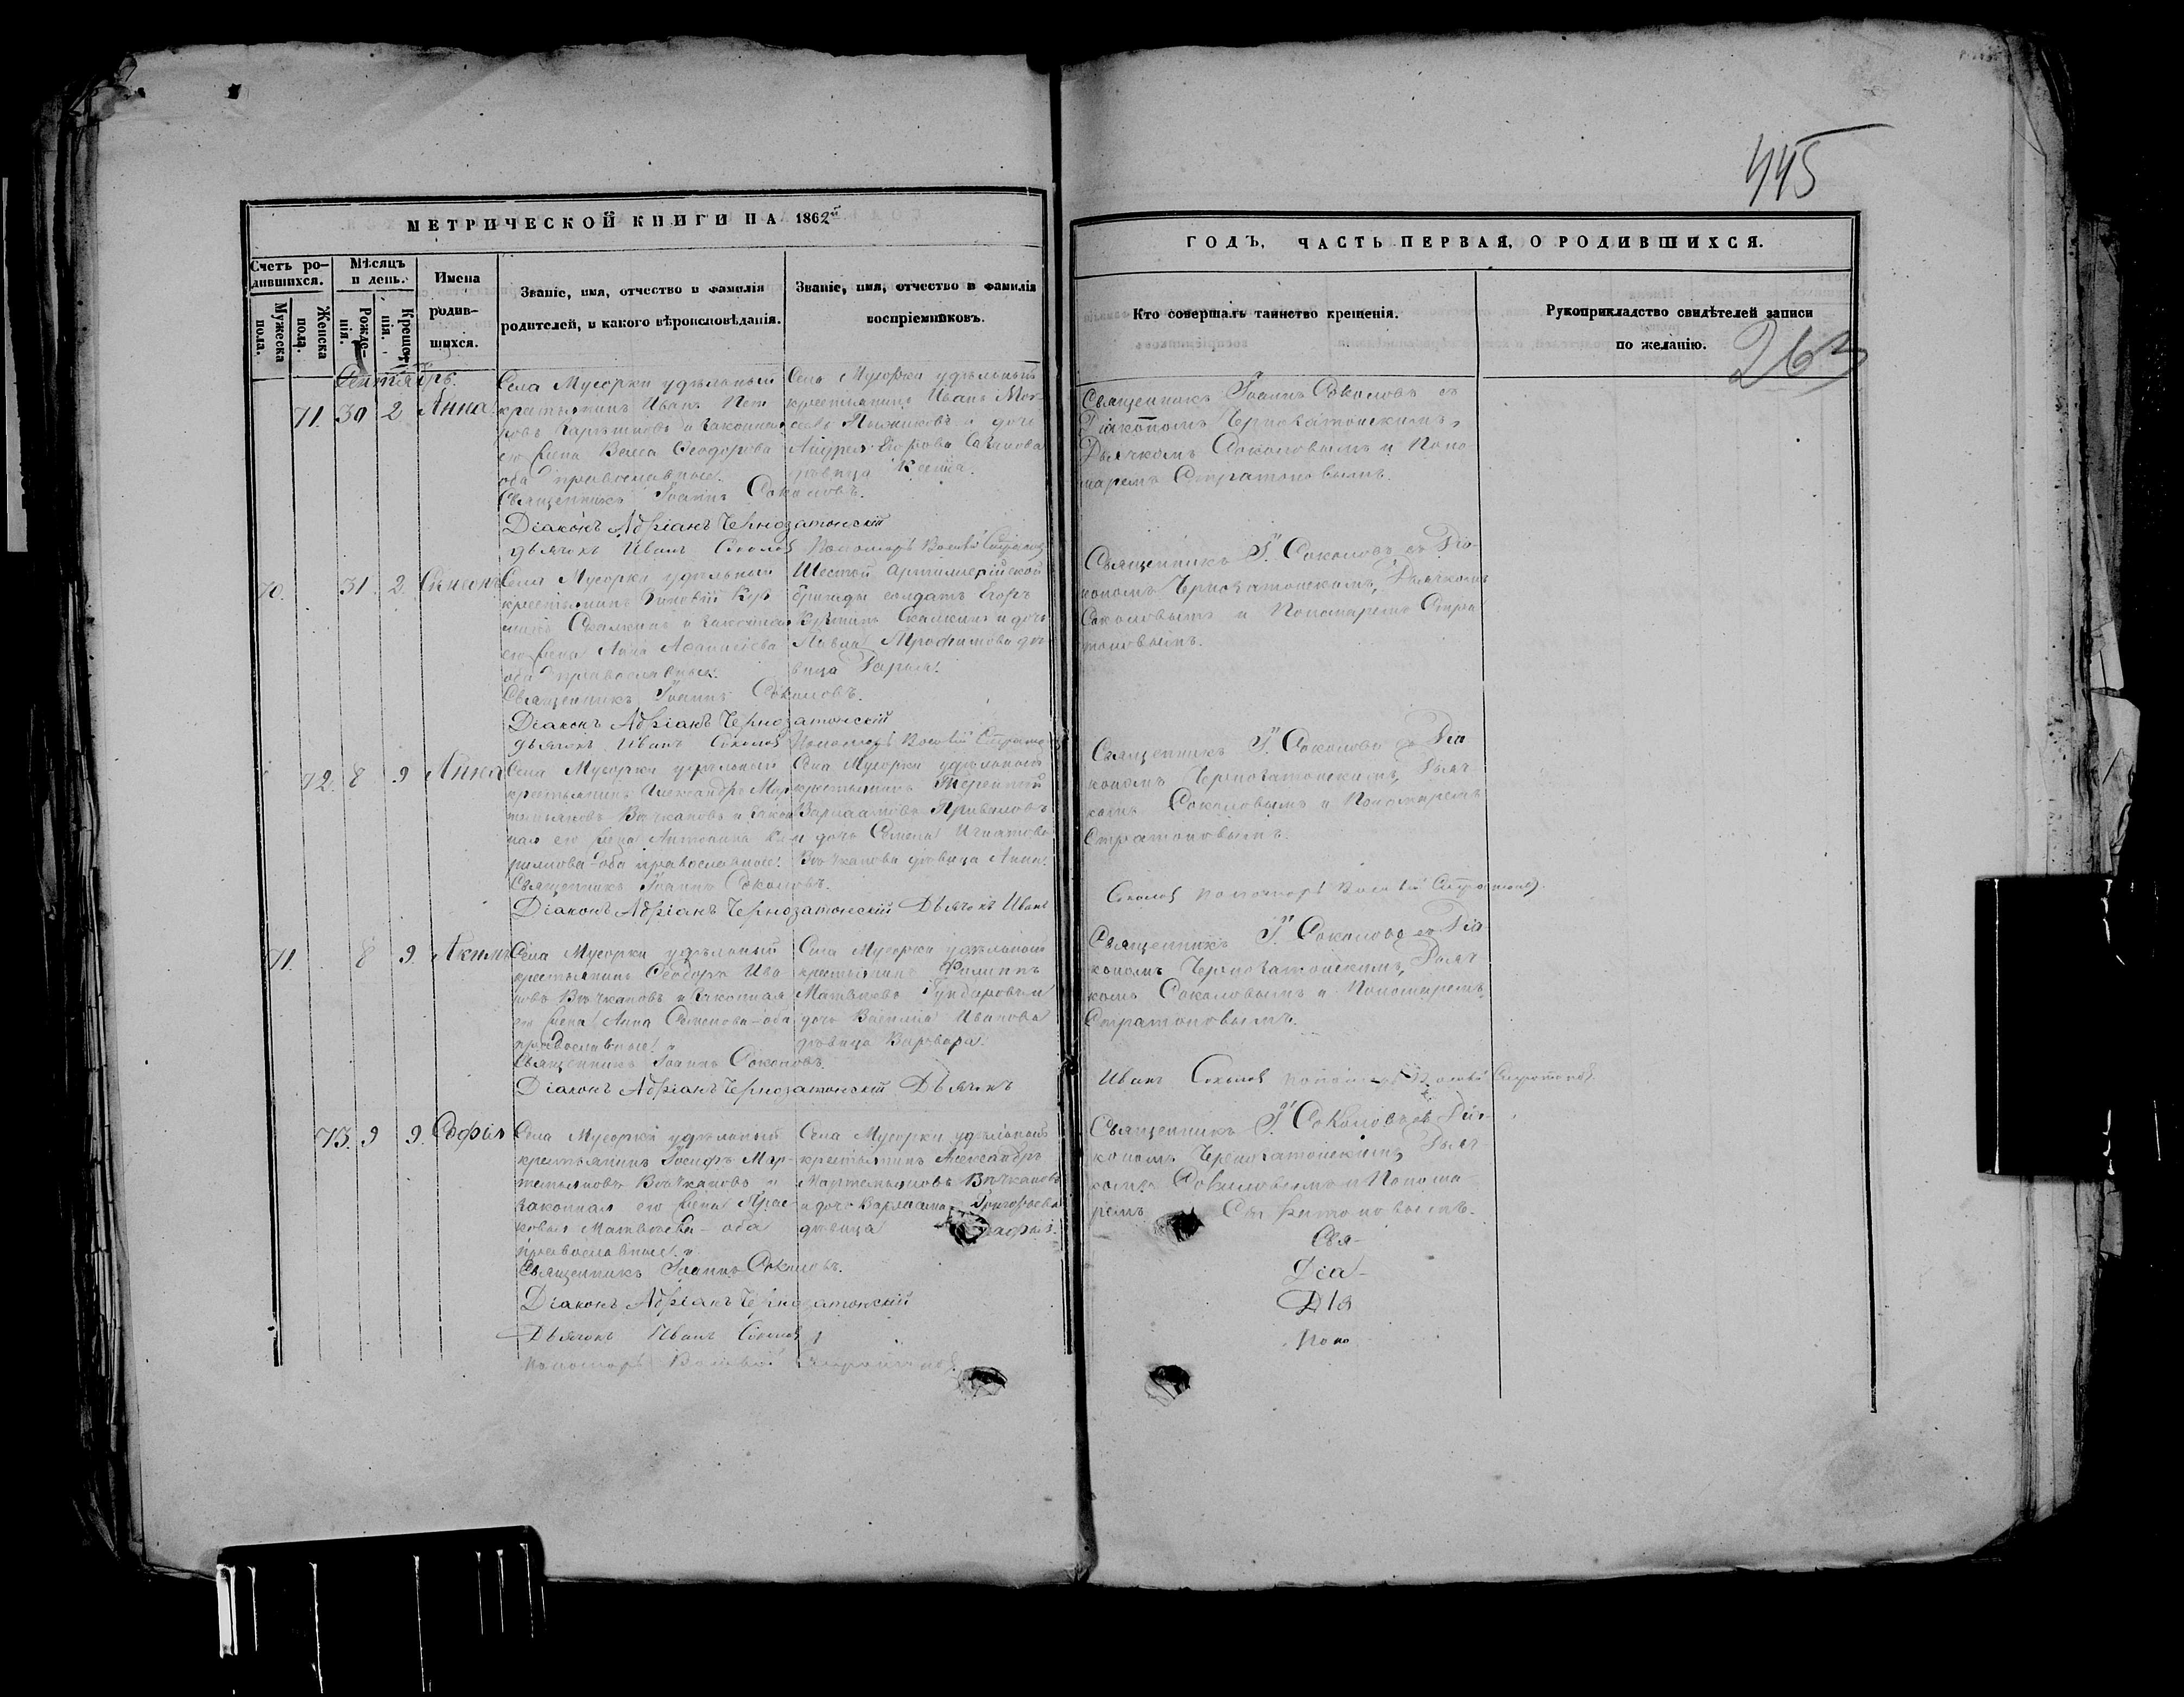 445
МЕТРИЧЕСКОЙ КНИГИ НА 1862й
ГОДЪ, ЧАСТЬ ПЕРВАЯ, О РОДИВШИХСЯ.
Счетъ ро-
дившихся.
Мужеска
пола.
Женска
пола.
Мѣсяцъ
и день.
Рожде-
нія.
Крещенія.
Имена
родив-
шихся.
Званіе, имя, отчество и фамилія
родителей, и какого вѣроисповѣданія.
Званіе, имя, отчество и фамилія
воспріемниковъ.
Кто совершалъ таинство крещенія.
Рукоприкладство свидѣтелей записи
по желанію.
263
Сентябрь.
71. 30 2 Анна.
Села Мусорки удѣльный
крестьянинъ Иванъ Пет-
ровъ и законная
его жена Васса Ѳеодорова
оба православные.
Священникъ Іоаннъ Соколовъ.
Діаконъ Адріанъ Чернозатонскій
дьячокъ Иванъ Соколов Пономарь
Села Мусорки удѣльный
крестьянинъ Иванъ
и дочь
Андрея Егорова
дѣвица Ксенія.
Священникъ Іоаннъ Соколовъ съ
Діакономъ Чернозатонскимъ,
Дьячкомъ Соколовымъ и Поно-
маремъ Стратоновымъ.
70. 31. 2. Симеонъ
Села Мусорки удѣльный
крестьянинъ
и законная
его жена Анна
оба православные.
Священникъ Іоаннъ Соколовъ.
Діаконъ Адріанъ Чернозатонскій
дьячокъ Иванъ Соколов Пономарь
Шестой Артиллерійской
бригады солдатъ Егоръ
и дочь
Трофимова дѣ-
вица Дарья.
Священникъ І. Соколовъ съ Діа-
кономъ Чернозатонскимъ, Дьячкомъ
Соколовымъ и Пономаремъ Стра-
тоновымъ.
72. 8 9 Анна
Села Мусорки удѣльный
крестьянинъ Александръ Мар-
темьяновъ Вѣчкановъ и закон-
ная его жена Антонина
оба православные.
Священникъ Іоаннъ Соколовъ.
Діаконъ Адріанъ Чернозатонскій Дьячокъ Иванъ
Села Мусорки удѣльный
крестьянинъ Терентій
Варлаамовъ Приваловъ
и дочь Семена Игнатова
Вѣчканова дѣвица Анна.
Священникъ І. Соколовъ съ Діа-
кономъ Чернозатонскимъ, Дьяч-
комъ Соколовымъ и Пономаремъ
Стратоновымъ.
Соколов пономарь
71. 8 9 Акимъ
Села Мусорки удѣльный
крестьянинъ Ѳеодоръ Ива-
новъ Вѣчкановъ и законная
его жена Анна Семенова - оба
православные.
Священникъ Іоаннъ Соколовъ.
Діаконъ Адріанъ Чернозатонскій Дьячокъ
Села Мусорки удѣльный
крестьянинъ Филиппъ
Матвѣевъ и
дочь Василія Иванова
дѣвица Варвара.
Священникъ І. Соколовъ съ Діа-
кономъ Чернозатонскимъ, Дьяч-
комъ Соколовымъ и Пономаремъ
Стратоновымъ.
Иванъ Соколов пономарь
73. 9 9. Софья
Села Мусорки удѣльный
крестьянинъ Іосифъ Мар-
темьяновъ Вѣчкановъ и
законная его жена Прас-
ковья Матвѣева - оба
православные.
Священникъ Іоаннъ Соколовъ.
Діаконъ Адріанъ Чернозатонскій
Дьячокъ Иванъ Соколов
пономарь
Села Мусорки удѣльный
крестьянинъ Александръ
Мартемьяновъ Вѣчкановъ
и дочь Варлаама Григорьева
дѣвица
Священникъ І. Соколовъ съ Діа-
кономъ Чернозатонскимъ, Дьяч-
комъ Соколовымъ и Понома-
ремъ Стратоновымъ.
Свя-
Діа-
Дья
Поно